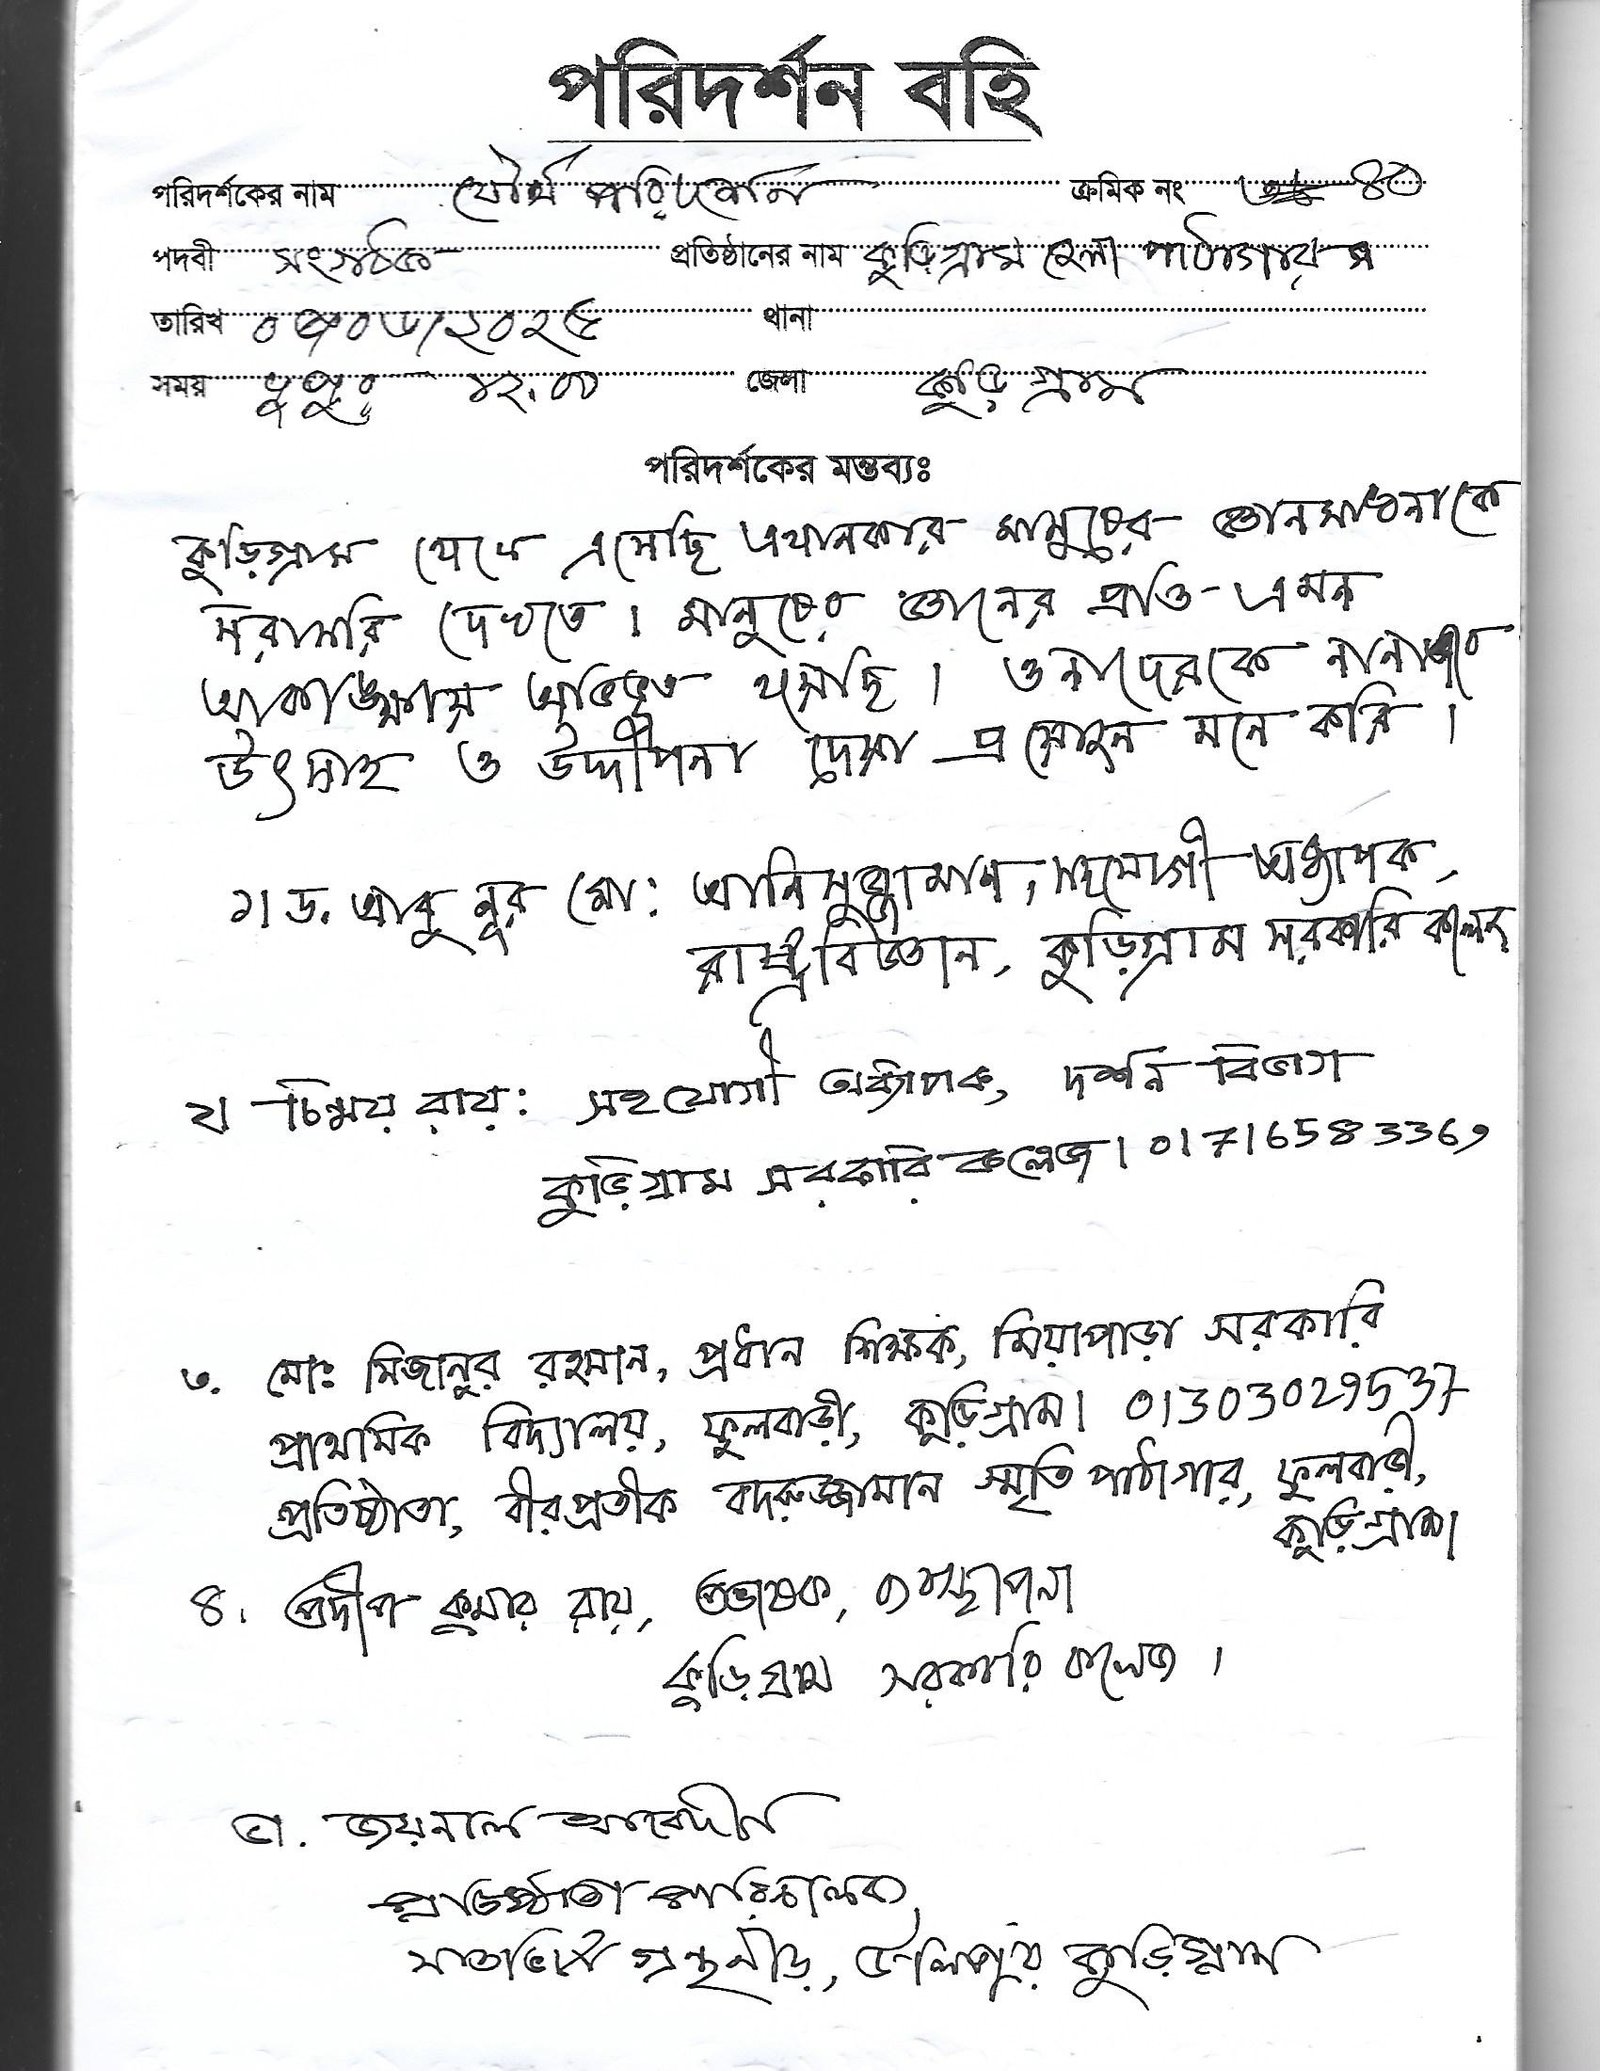 পরিদর্শন বহি
পরিদর্শকের নাম যৌথ পরিদর্শন ক্রমিক নং ৪০
পদবী সংগঠক প্রতিষ্ঠানের নাম কুড়িগ্রাম জেলা পাঠাগার
তারিখ /২০২৫ থানা
সময় দুপুর ১২.০০ জেলা কুড়িগ্রাম
পরিদর্শকের মন্তব্যঃ
কুড়িগ্রাম থেকে এসেছি এখানকার মানুষের জ্ঞানসাধনাকে
সরাসরি দেখতে। মানুষের জ্ঞানের প্রতি এমন
আকাঙ্ক্ষায় অভিভূত হয়েছি। ওনাদেরকে নানাভাবে
উৎসাহ ও উদ্দীপনা দেয়া প্রয়োজন মনে করি।
১। ড. আবু নূর মো: আনিসুজ্জামান, সহযোগী অধ্যাপক,
রাষ্ট্রবিজ্ঞান, কুড়িগ্রাম সরকারি কলেজ
২। চিন্ময় রায়: সহযোগী অধ্যাপক, দর্শন বিভাগ
কুড়িগ্রাম সরকারি কলেজ। 01716583369
৩. মোঃ মিজানুর রহমান, প্রধান শিক্ষক, মিয়াপাড়া সরকারি
প্রাথমিক বিদ্যালয়, ফুলবাড়ী, কুড়িগ্রাম। 01303029537
প্রতিষ্ঠাতা, বীরপ্রতীক বদরুজ্জামান স্মৃতি পাঠাগার, ফুলবাড়ী,
কুড়িগ্রাম।
৪. প্রদীপ কুমার রায়, প্রভাষক, ব্যবস্থাপনা
কুড়িগ্রাম সরকারি কলেজ।
৫. জয়নাল আবেদীন
প্রতিষ্ঠাতা পরিচালক,
সাতভিটা গ্রন্থনীড়, উলিপুর কুড়িগ্রাম